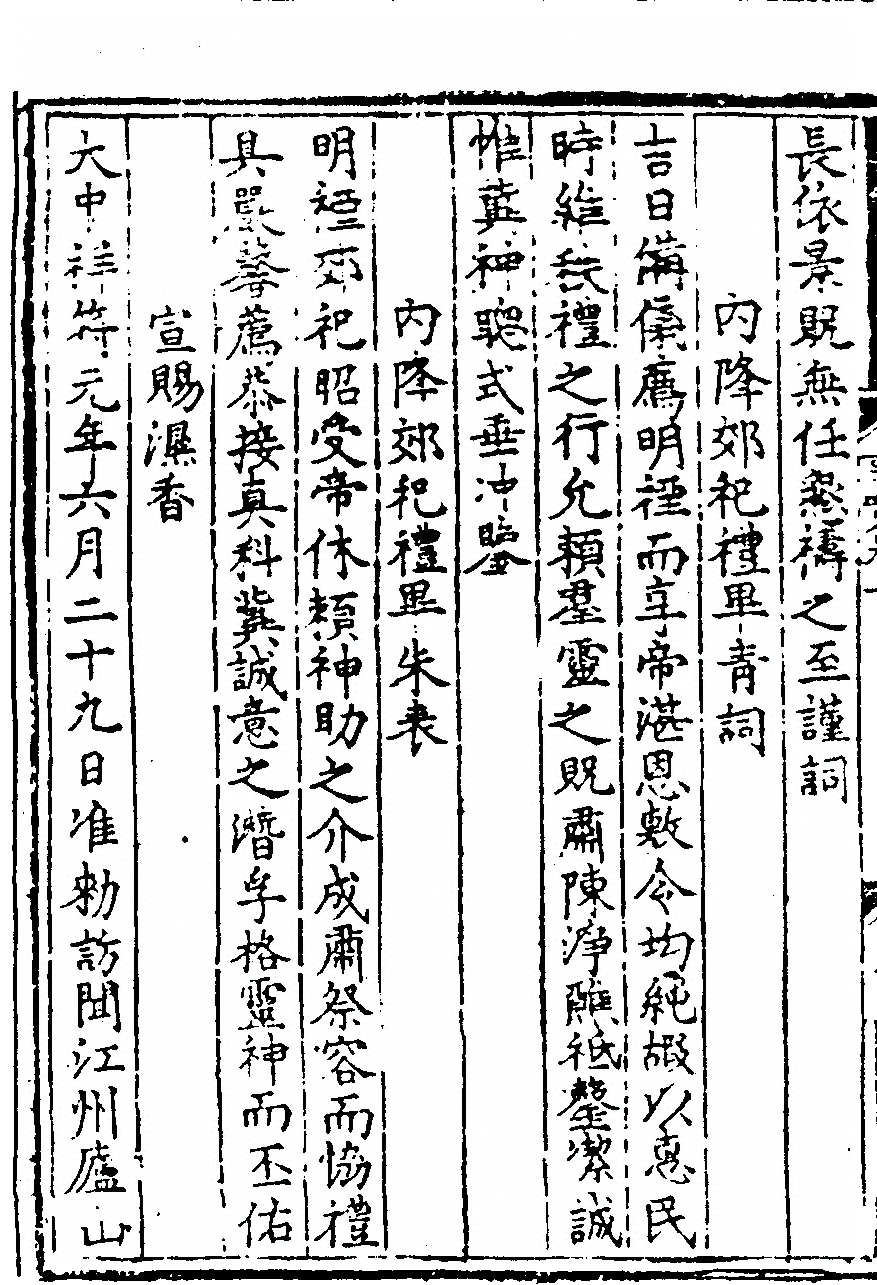 長依景貺無任懇禱之至謹詞
內降郊祀禮畢青詞
吉日備儀薦明禋而享帝湛恩敷令均純嘏以惠民
時維秩禮之行允頼羣靈之貺肅陳淨醮祗罄潔誠
惟兾神聰式垂冲鑒
內降郊祀禮畢朱表
明禋郊祀昭受帝休頼神助之介成肅祭容而恊禮
具嚴馨薦恭接真科兾誠意之潛孚格靈神而丕佑
宣賜濕香
大中祥符元年六月二十九日准勑訪聞江州廬山